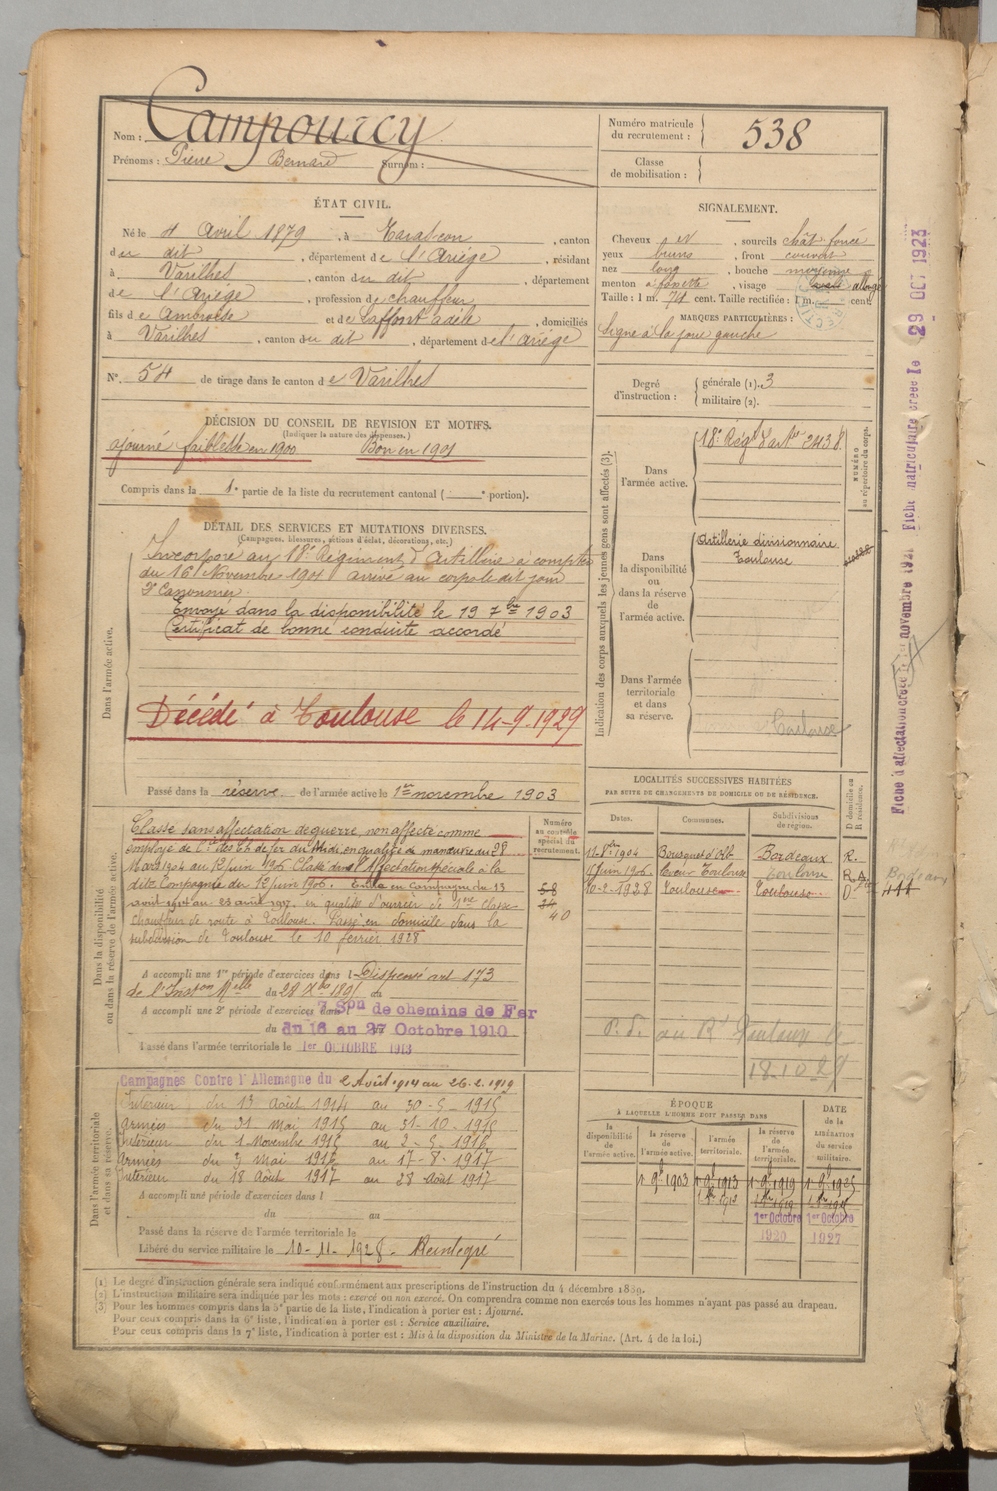 Nom : Campourcy
Prénoms : Pierre Bernard Surnom :
Numéro matricule du recrutement : 538
Classe de mobilisation :
ÉTAT CIVIL.
Né le 4 Avril 1879, à Tarascon, canton
du dit, département de l'Ariège, résidant
à Varilhes, canton du dit, département
de l'Ariège, profession de chauffeur
fils de Ambroise et de Laffont adèle, domiciliés
à Varilhes, canton du dit, département de l'Ariège
N° 54 de tirage dans le canton de Varilhes
SIGNALEMENT.
Cheveux et, sourcils chât foncé
yeux bruns, front couvert
nez long, bouche moyenne
menton à fossette, visage ovale allongé
Taille : 1 m. 71 cent. Taille rectifiée : 1 m. cent.
MARQUES PARTICULIÈRES :
Signe à la joue gauche
Degré d'instruction : générale (1). 3
militaire (2).
DÉCISION DU CONSEIL DE REVISION ET MOTIFS.
(Indiquer la nature des dispenses.)
ajourné faiblesse en 1900 Bon en 1901
Compris dans la 1e partie de la liste du recrutement cantonal ( e portion).
DÉTAIL DES SERVICES ET MUTATIONS DIVERSES.
(Campagnes, blessures, actions d'éclat, décorations, etc.)
Dans l'armée active.
Incorporé au 18e Régiment d'Artillerie à compter
du 16 Novembre 1901 arrivé au corps le dit jour
2e Canonnier.
Envoyé dans la disponibilité le 19 7bre 1903
Certificat de bonne conduite accordé
Décédé à Toulouse le 14-9-1929
Passé dans la réserve de l'armée active le 1er novembre 1903
Indication des corps auxquels les jeunes gens sont affectés (3).
NUMÉRO au répertoire du corps.
Dans l'armée active.
18e Régt d'artie 2438
Dans la disponibilité ou dans la réserve de l'armée active.
Artillerie divisionnaire
Toulouse
Dans l'armée territoriale et dans sa réserve.
Toulouse
Dans la disponibilité ou dans la réserve de l'armée active.
Classé sans affectation de guerre, non affecté comme
employé de la Cie des Ch. de fer du Midi, en qualité de manœuvre du 28
Mars 1904 au 12 juin 1906. Classé dans l'Affectation spéciale à la
dite Compagnie du 12 juin 1906.
chauffeur de route à Toulouse. Passé en domicile dans la
subdivision de Toulouse le 10 février 1928
Numéro au contrôle spécial du recrutement.
58
34
40
A accompli une 1re période d'exercices dans l Dispensé art 173
de l'Inston Mlle du 28 Xbre 1895 au
A accompli une 2e période d'exercices dans 7 Son de chemins de Fer
du du 18 au 27 Octobre 1910
Passé dans l'armée territoriale le 1er OCTOBRE 1913
LOCALITÉS SUCCESSIVES HABITÉES
PAR SUITE DE CHANGEMENTS DE DOMICILE OU DE RÉSIDENCE.
Dates. Communes. Subdivisions de région. D domicile ou R résidence.
11-8bre 1904 Bousquet d'Orb Bordeaux R.
Juin 1906 Toulouse Toulouse R.
10-2-1928 Toulouse Toulouse D
18-10-29
Dans l'armée territoriale et dans sa réserve.
Campagnes Contre l'Allemagne du 2 Août 1914 au 26.2.1919
Intérieur du 13 Août 1914 au 30-5-1915
Armées du 31 Mai 1915 au 31-10-1915
Intérieur du 1 Novembre 1915 au 2-5-1916
Armées du 3 Mai 1916 au 17-8-1917
Intérieur du 18 Août 1917 au 28 Août 1917
A accompli une période d'exercices dans l
du au
Passé dans la réserve de l'armée territoriale le
Libéré du service militaire le 10-11-1928 - Réintégré
ÉPOQUE
À LAQUELLE L'HOMME DOIT PASSER DANS
DATE de la LIBÉRATION du service militaire.
la disponibilité de l'armée active. la réserve de l'armée active. l'armée territoriale. la réserve de l'armée territoriale.
1 9b 1903 1 9b 1913 1 9b 1919 1 9b 1925
1er Octobre 1920 1er Octobre 1927
(1) Le degré d'instruction générale sera indiqué conformément aux prescriptions de l'instruction du 4 décembre 1889.
(2) L'instruction militaire sera indiquée par les mots : exercé ou non exercé. On comprendra comme non exercés tous les hommes n'ayant pas passé au drapeau.
(3) Pour les hommes compris dans la 5e partie de la liste, l'indication à porter est : Ajourné.
Pour ceux compris dans la 6e liste, l'indication à porter est : Service auxiliaire.
Pour ceux compris dans la 7e liste, l'indication à porter est : Mis à la disposition du Ministre de la Marine. (Art. 4 de la loi.)
Fiche matriculaire créée le 29 OCT 1923
Bordeaux